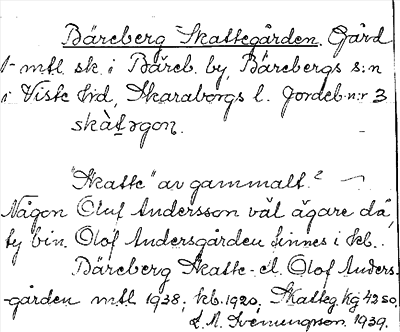 Bäreberg Skattegården. Gård
1 mtl sk. i Bäreb. by, Bärebergs s:n
i Viste hrd, Skaraborgs l. Jordeb.n:r 3
skàt̠ǝgo̠n.
"Skatte" av gammalt?
Någon Oluf Andersson väl ägare då,
ty bin. Olof Andersgården finnes i kb.
Bäreberg Skatte- el. Olof Anders-
-gården mtl 1938; kb. 1920, Skatteg. Kg 4250.
1939.